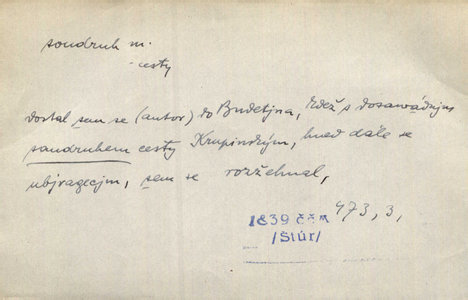 soudruh m.
- cesty
dostal sem se (autor) do Budetjna, kdež s dosawádnjm
saudruhem cesty Krupinským, hned dále se
ubjragecjm, sem se rozžehnal,
473, 3,
1839 ččm
/Štúr/